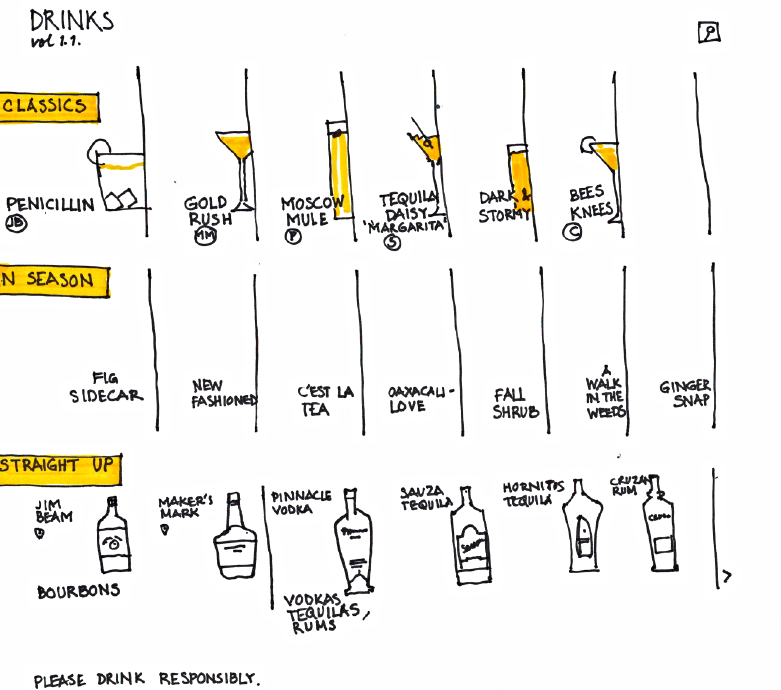 DRINKS
vol 1.1.
CLASSICS
PENICILLIN
JB
GOLD
RUSH
MM
MOSCOW
MULE
P
TEQUILA
DAISY
'MARGARITA'
S
DARK &
STORMY
BEES
KNEES
C
N SEASON
FIG
SIDECAR
NEW
FASHIONED
C'EST LA
TEA
OAXACALI-
LOVE
FALL
SHRUB
A
WALK
IN THE
WEEDS
GINGER
SNAP
STRAIGHT UP
JIM
BEAM
MAKER'S
MARK
BOURBONS
PINNACLE
VODKA
SAUZA
TEQUILA
HORNITOS
TEQUILA
CRUZAN
RUM
VODKAS
TEQUILAS,
RUMS
>
PLEASE DRINK RESPONSIBLY.